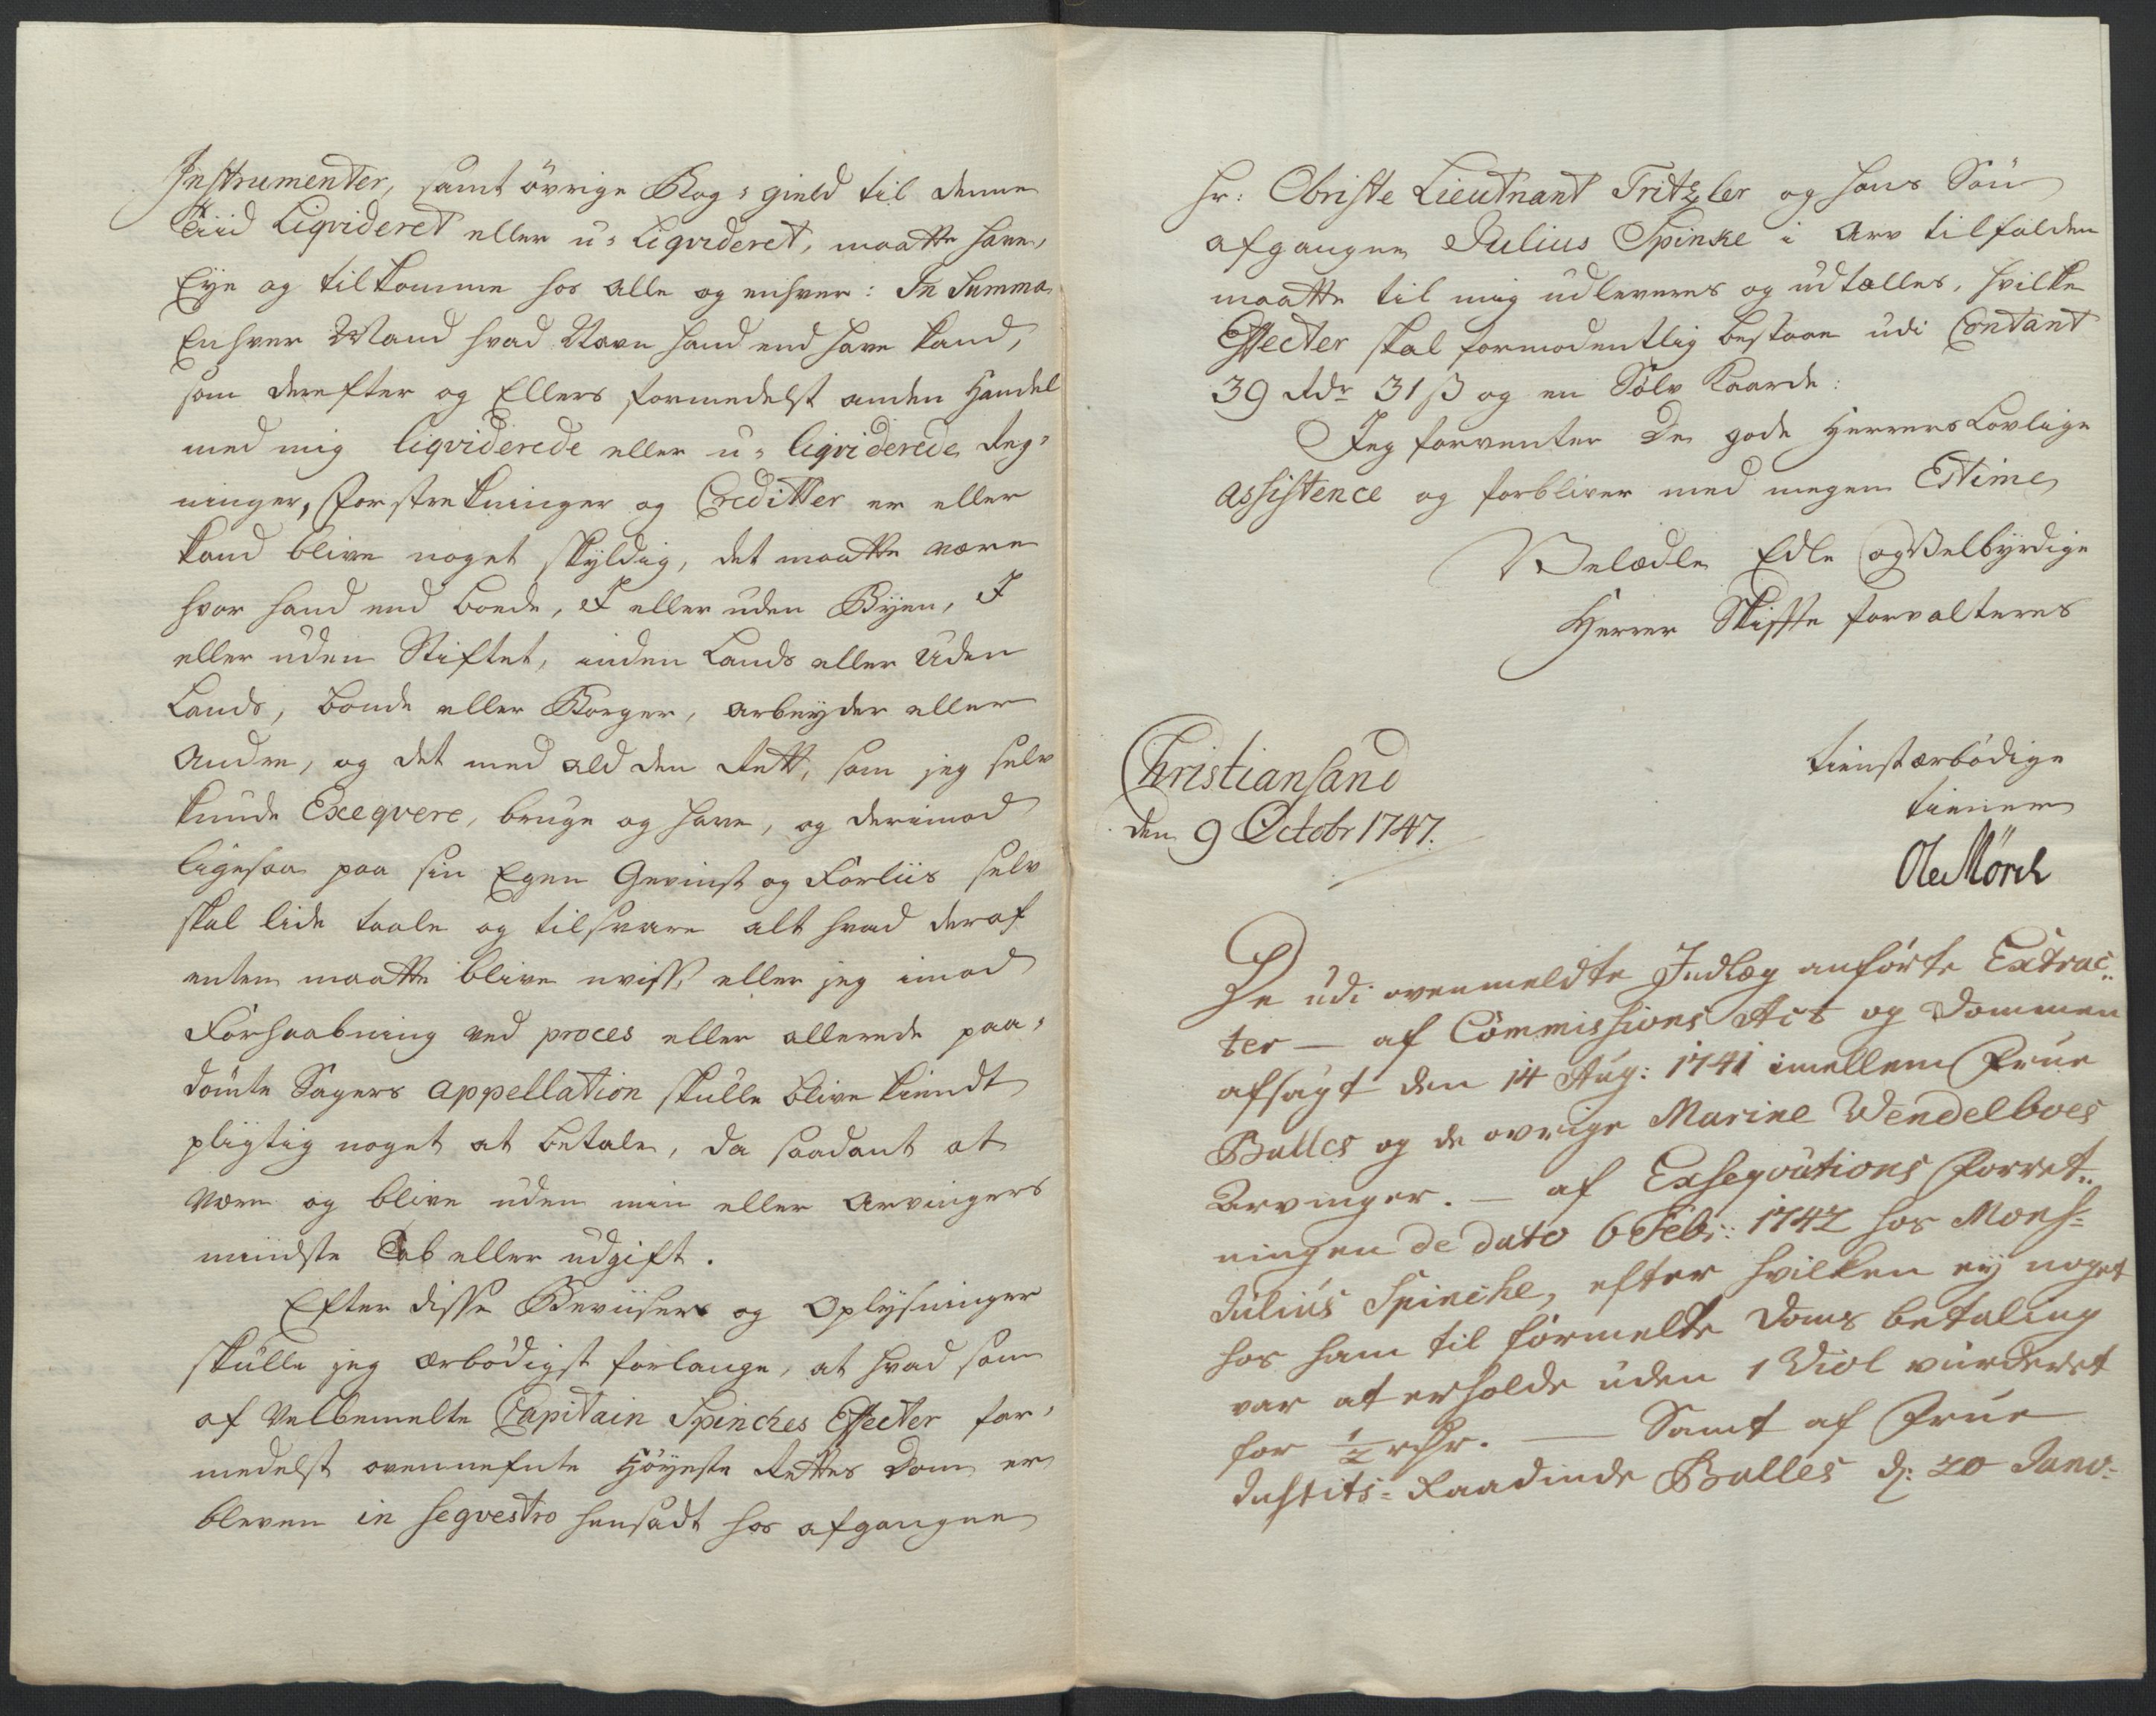 Instrumenter, samt övrige Bog-gield til denne
Tiid Liqvideret eller u-Liqvideret, maatte have,
Eye og tilkomme hos alle og enhver: In Summa
Enhver Mand hvad Navn hand end have kand,
som derefter og Ellers formedelst anden Handel
med mig liqviderede eller u-liqviderede Reg-
ninger, Forstrekninger og Creditter er eller
kand blive noget skyldig, det maatte være
hvor hand end boede, I eller uden Byen, I
eller uden Stiftet, inden Lands eller Uden
Lands, bonde eller Borger, arbeyder eller
Andre, og det med ald den Rett, som jeg selv
kunde Exeqvere, bruge og have, og derimod
ligesaa paa sin Egen Gevinst og Forliis selv
skal lide taale og tilsvare alt hvad deraf
enten maatte blive uviss, eller jeg imod
Forhaabning ved proces eller allerede paa-
dømte Sagers appellation skulle blive kiendt
pligtig noget at betale, da saadant at
være og blive uden min eller Arvingers
mindste Tab eller udgift.
Efter disse Beviiser og Oplysninger
skulle jeg ærbødigst forlange, at hvad som
af Velbemelte Capitain Spinckes Effecter for-
medelst ovennefnte Höyeste Rettes Dom er
bleven in seqvestro hensadt hos afgangne
Hr: Obriste Lieutnant Fritzler og hans Søn
afgangne Julius Spinke i Arv tilfalden
maatte til mig udleveres og udtælles, hvilke
Effecter skal formodentlig bestaae udi Contant
39 Rdr 31 ß og en Sölv Kaarde:
Jeg forventer De gode Herrers Lovlige
assistence og forbliver med megen Estime
Velædle Edle og Velbyrdige
Herrer Skifte forvalteres
Christiansand
den 9 Octobr 1747.
tienstærbødige
tiener
Ole Mörch
De udi ovenmeldte Indlæg anførte Extrac-
ter — af Commissions Act og Dommen
afsagt den 14 Aug: 1741 imellem Frue
Balles og de øvrige Marine Wendelboes
Arvinger. — af Exseqvutions Forret-
ningen de dato 6 Febr: 1742 hos Mons.
Julius Spincke, efter hvilken ey noget
hos ham til förmeldte Doms betaling
var at erholde uden 1 Viol vurderet
for ½ rdr. — Samt af Frue
Justits-Raadinde Balles d: 20 Janv.